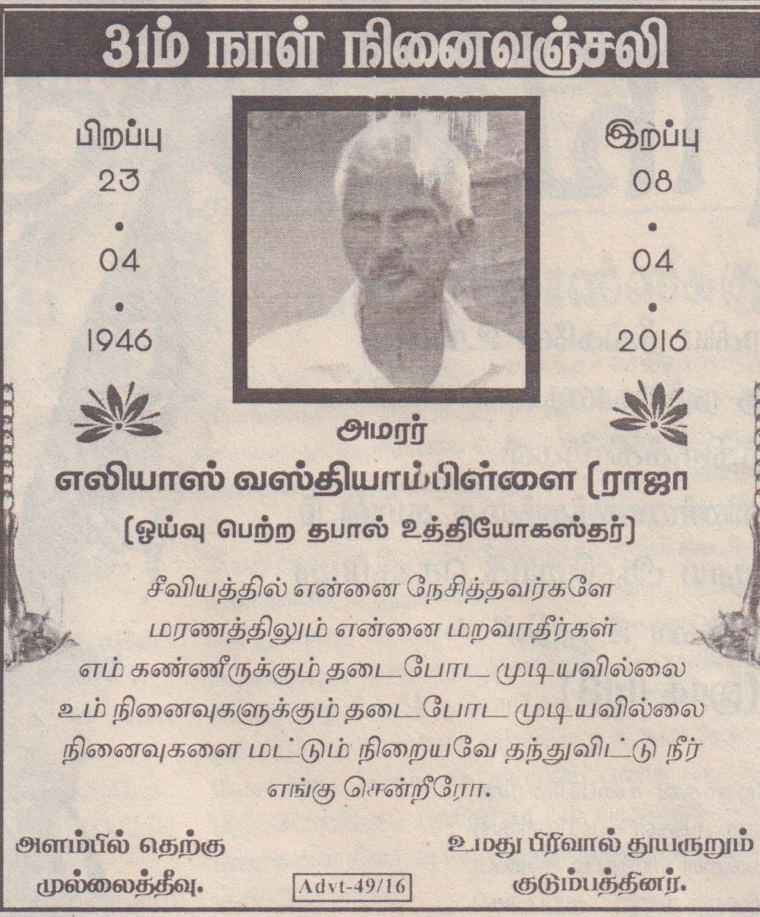 31ம் நாள் நினைவஞ்சலி
பிறப்பு
23
•
04
•
1946
இறப்பு
08
•
04
•
2016
அமரர்
எலியாஸ் வஸ்தியாம்பிள்ளை (ராஜா
(ஓய்வு பெற்ற தபால் உத்தியோகஸ்தர்)
சீவியத்தில் என்னை நேசித்தவர்களே
மரணத்திலும் என்னை மறவாதீர்கள்
எம் கண்ணீருக்கும் தடைபோட முடியவில்லை
உம் நினைவுகளுக்கும் தடைபோட முடியவில்லை
நினைவுகளை மட்டும் நிறையவே தந்துவிட்டு நீர்
எங்கு சென்றீரோ.
அளம்பில் தெற்கு
முல்லைத்தீவு.
Advt-49/16
உமது பிரிவால் துயருறும்
குடும்பத்தினர்.